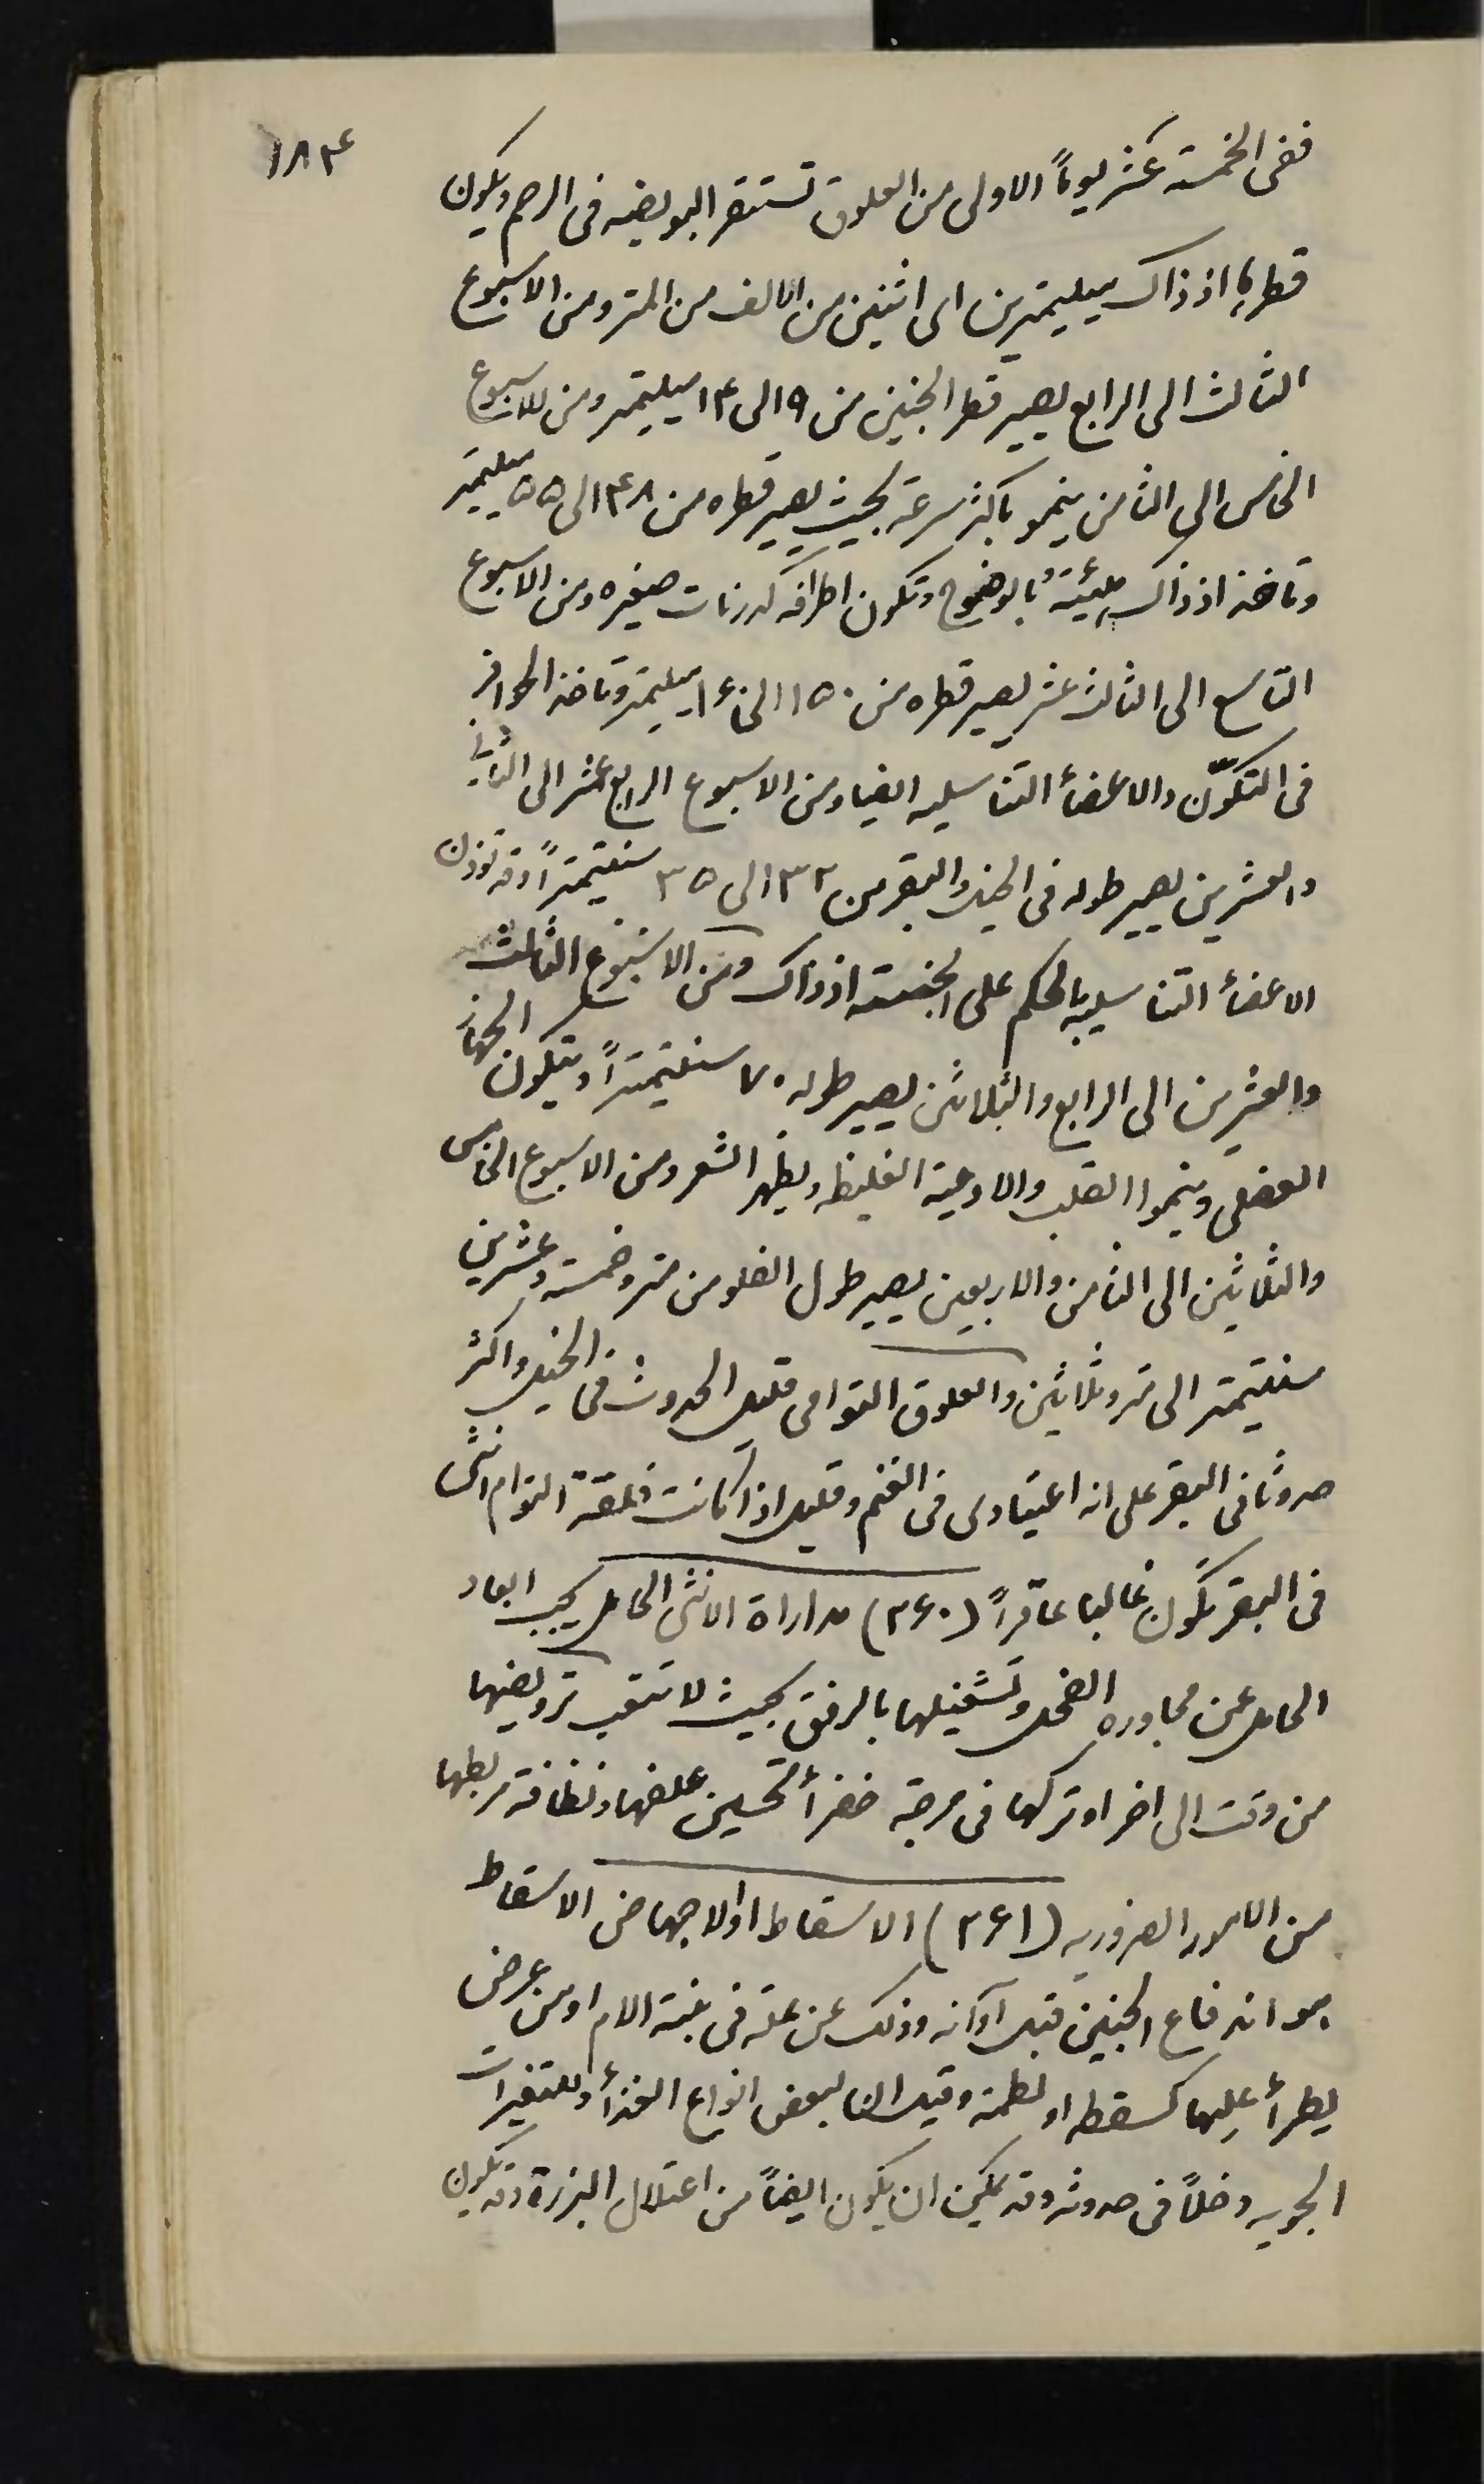 ١٨٤
ففى الخمسة عشر يوماً الاولى من العلوق تستقر البويضه فى الرحم ويكون
قطرها اذ ذاك ميليمترين اى اثنين من الالف من المتر ومن الاسبوع
الثالث الى الرابع يصير قطر الجنين من ٩ الى ١٤ ميليمتر ومن للاسبوع
الخامس الى الثامن ينمو باكثر سرعة بحيث يصير قطره من ٤٨ الى ٥٥ ميليمتر
وتاخذ اذ ذاك هيئته بالوضوح وتكون اطرافه كدرنات صغيره ومن الاسبوع
التاسع الى الثالث عشر يصير قطره من ١٥٠ الى ١٦٠ ميليمتر وتاخذ الحوافر
فى التكوّن والاعضأ التناسليه ايضا ومن الاسبوع الرابع عشر الى الثانى
والعشرين يصير طوله فى الخيل والبقر من ٣٢ الى ٣٥ سنتيمتراً وقد تؤذن
الاعضأ التناسليه بالحكم على الجنسه اذ ذاك ومن الاسبوع الثالث
والعشرين الى الرابع والثلاثين يصير طوله ٧٠ سنتيمتراً ويتكون الجهاز
العضلى وينموا القلب والاوعية الغليظه ويظهر الشعر ومن الاسبوع الخامس
والثلاثين الى الثامن والاربعين يصير طول الفلو من متر وخمسة وعشرين
سنتيمتر الى متر وثلاثين والعلوق التوامى قليل الحدوث فى الخيل واكثر
حدوثا فى البقر على انه اعتيادى فى الغنم وقليل اذا كانت خلقة التوام انثى
فى البقر تكون غالبا عاقراً (٣٦٠) مداراة الانثى الحامل يجب ابعاد
الحامل عن مجاوره الفحل وتشغيلها بالرفق بحيث لا تتعب ترويضها
من وقت الى اخر او تركها فى مرجة خضرأ تحسين علفها ونظافة مربطها
من الامور الضروريه (٣٦١) الاسقاط او الاجهاض الاسقاط
هو اندفاع الجنين قبل آوانه وذلك عن علة فى بنية الام او من عرض
يطرأ عليها كسقطه او لطمة وقيل ان لبعض انواع الغذأ وللتغيرات
الجويه دخلاً فى حدوثه وقد يمكن ان يكون ايضاً من اعتلال البزرة وقد يكون